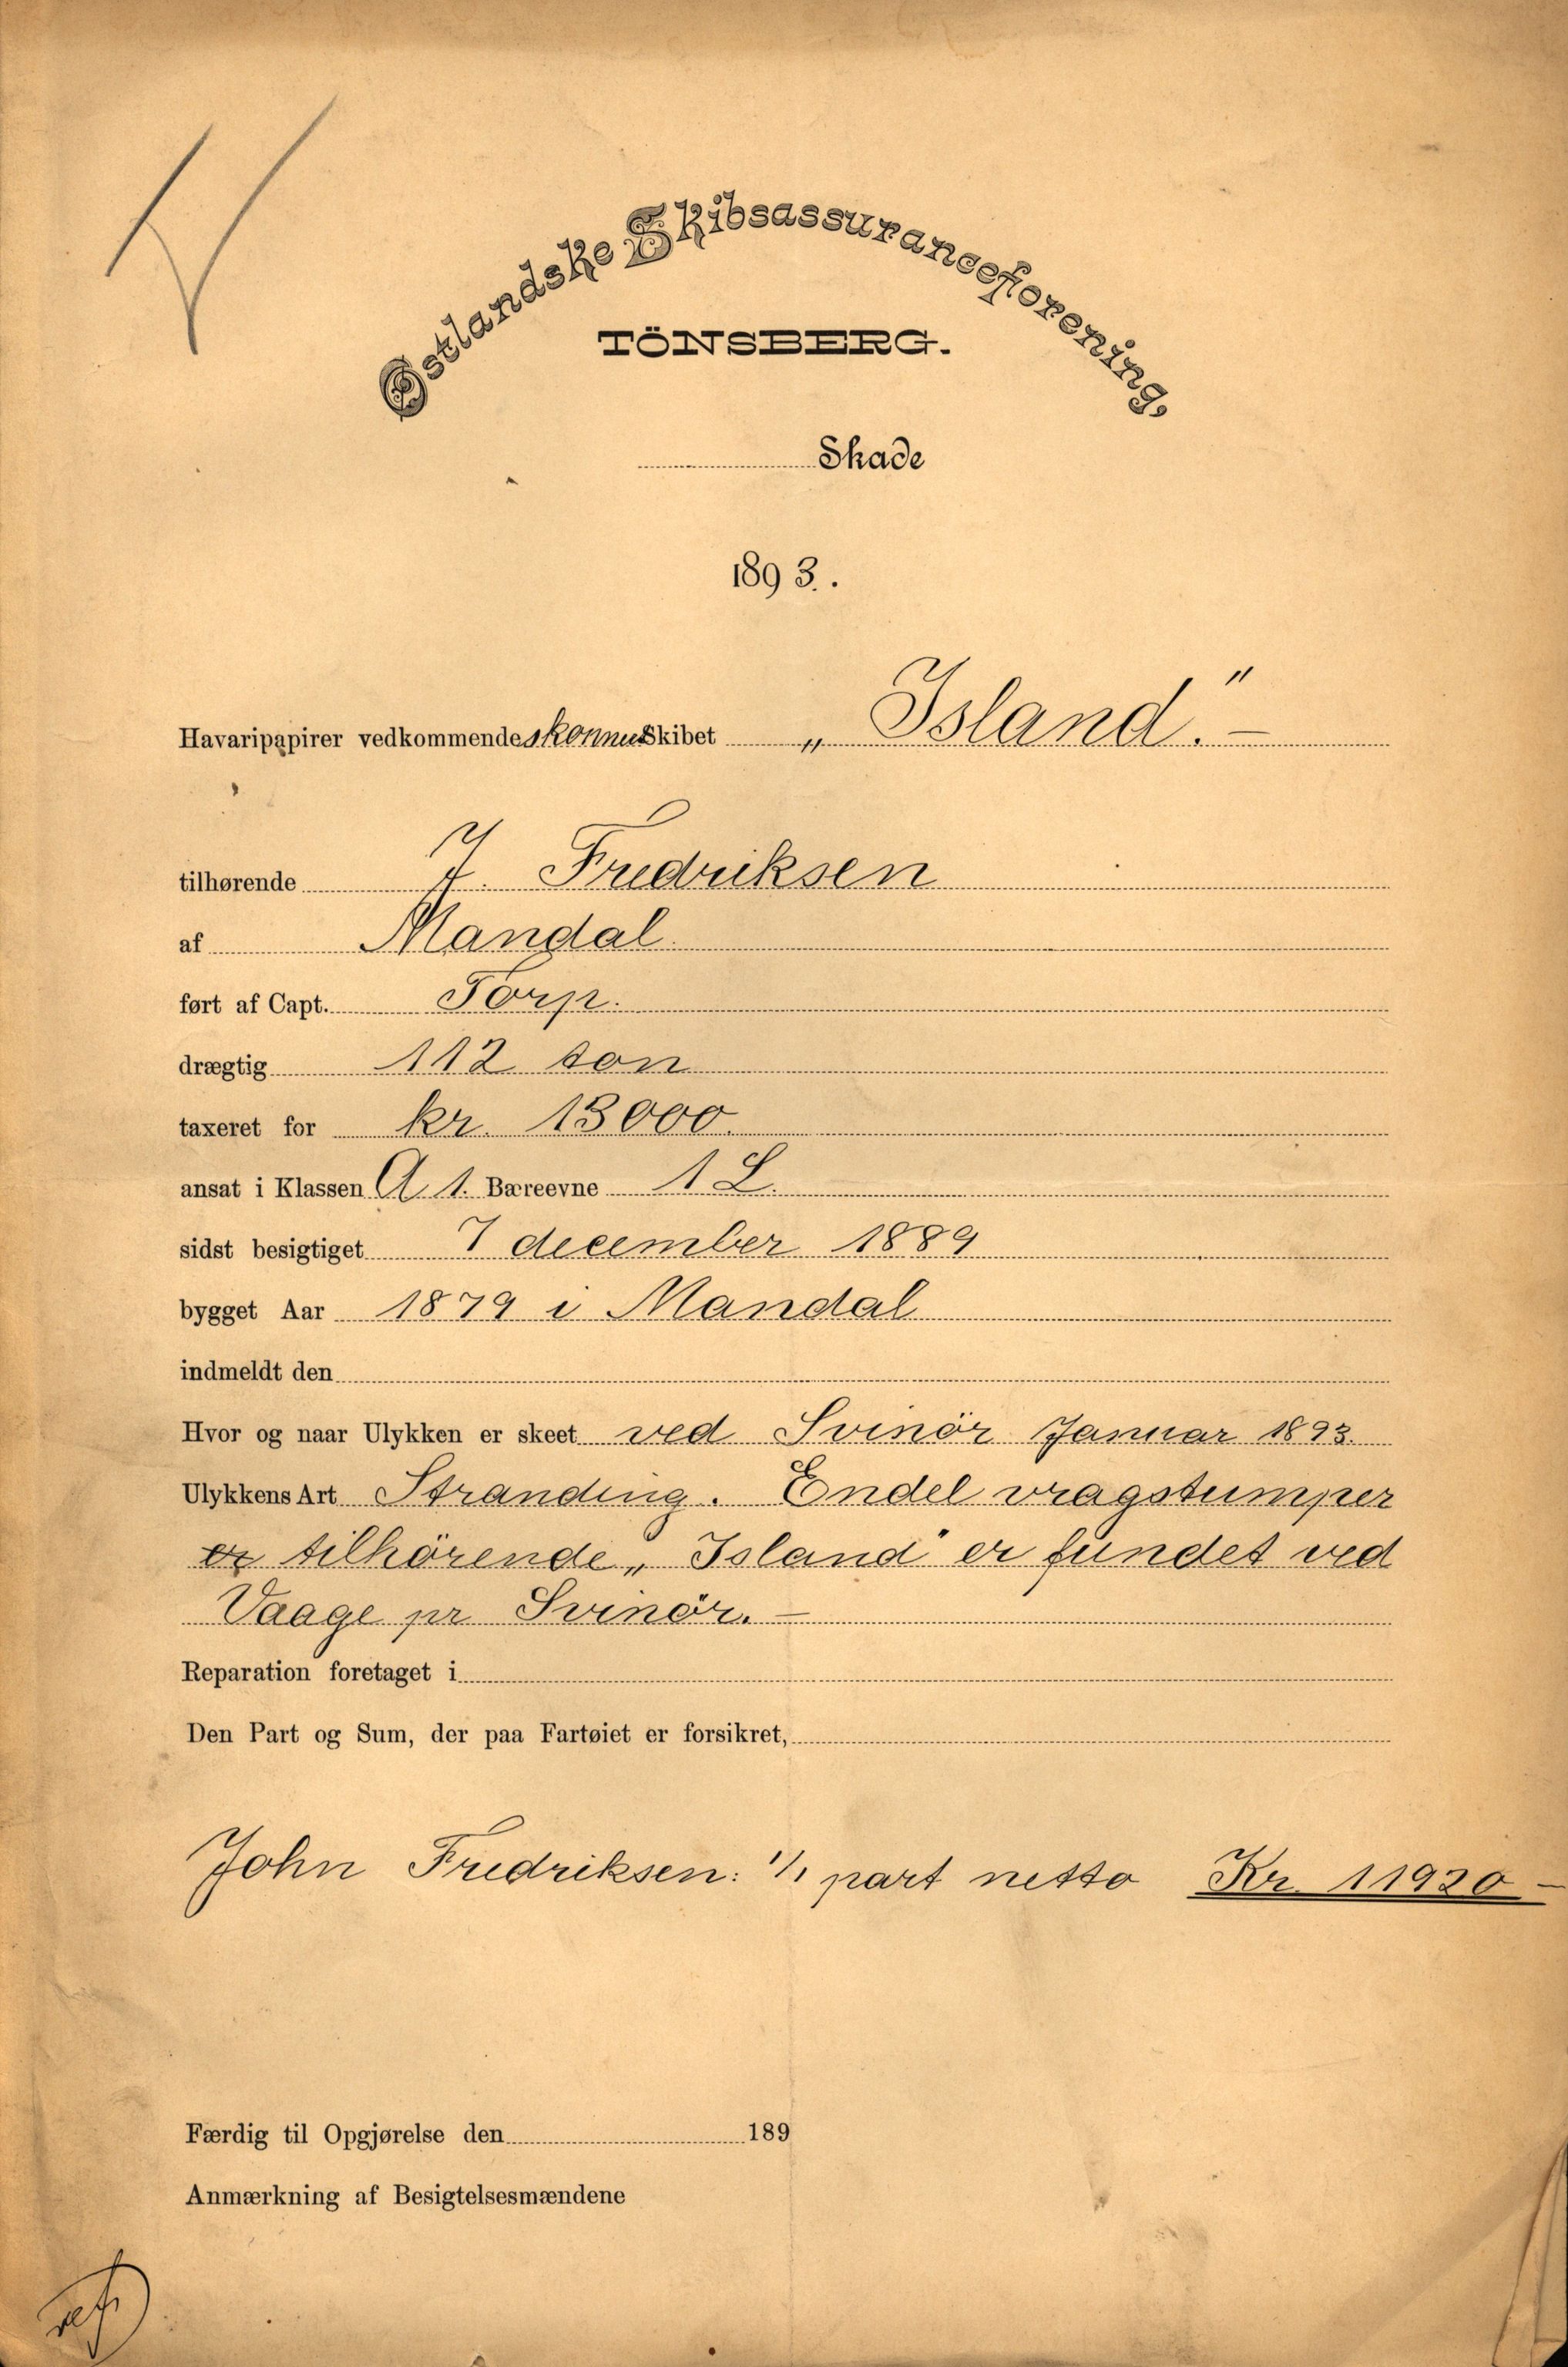 Østlandske Skibsassuranceforening,
TÖNSBERG.
Skade
1893.
Havaripapirer vedkommende skonnertSkibet „Island.“ —
tilhørende J. Fredriksen
af Mandal.
ført af Capt. Torp.
drægtig 112 ton
taxeret for kr. 13000.
ansat i Klassen A 1. Bæreevne 1 L.
sidst besigtiget 7 december 1889
bygget Aar 1879 i Mandal
indmeldt den
Hvor og naar Ulykken er skeet ved Svinör Januar 1893.
Ulykkens Art Stranding. Endel vragstumper
er tilhörende „Island“ er fundet ved
Vaage pr Svinör. —
Reparation foretaget i
Den Part og Sum, der paa Fartøiet er forsikret,
John Fredriksen: 1/1 part netto Kr. 11920 —
Færdig til Opgjørelse den 189
Anmærkning af Besigtelsesmændene